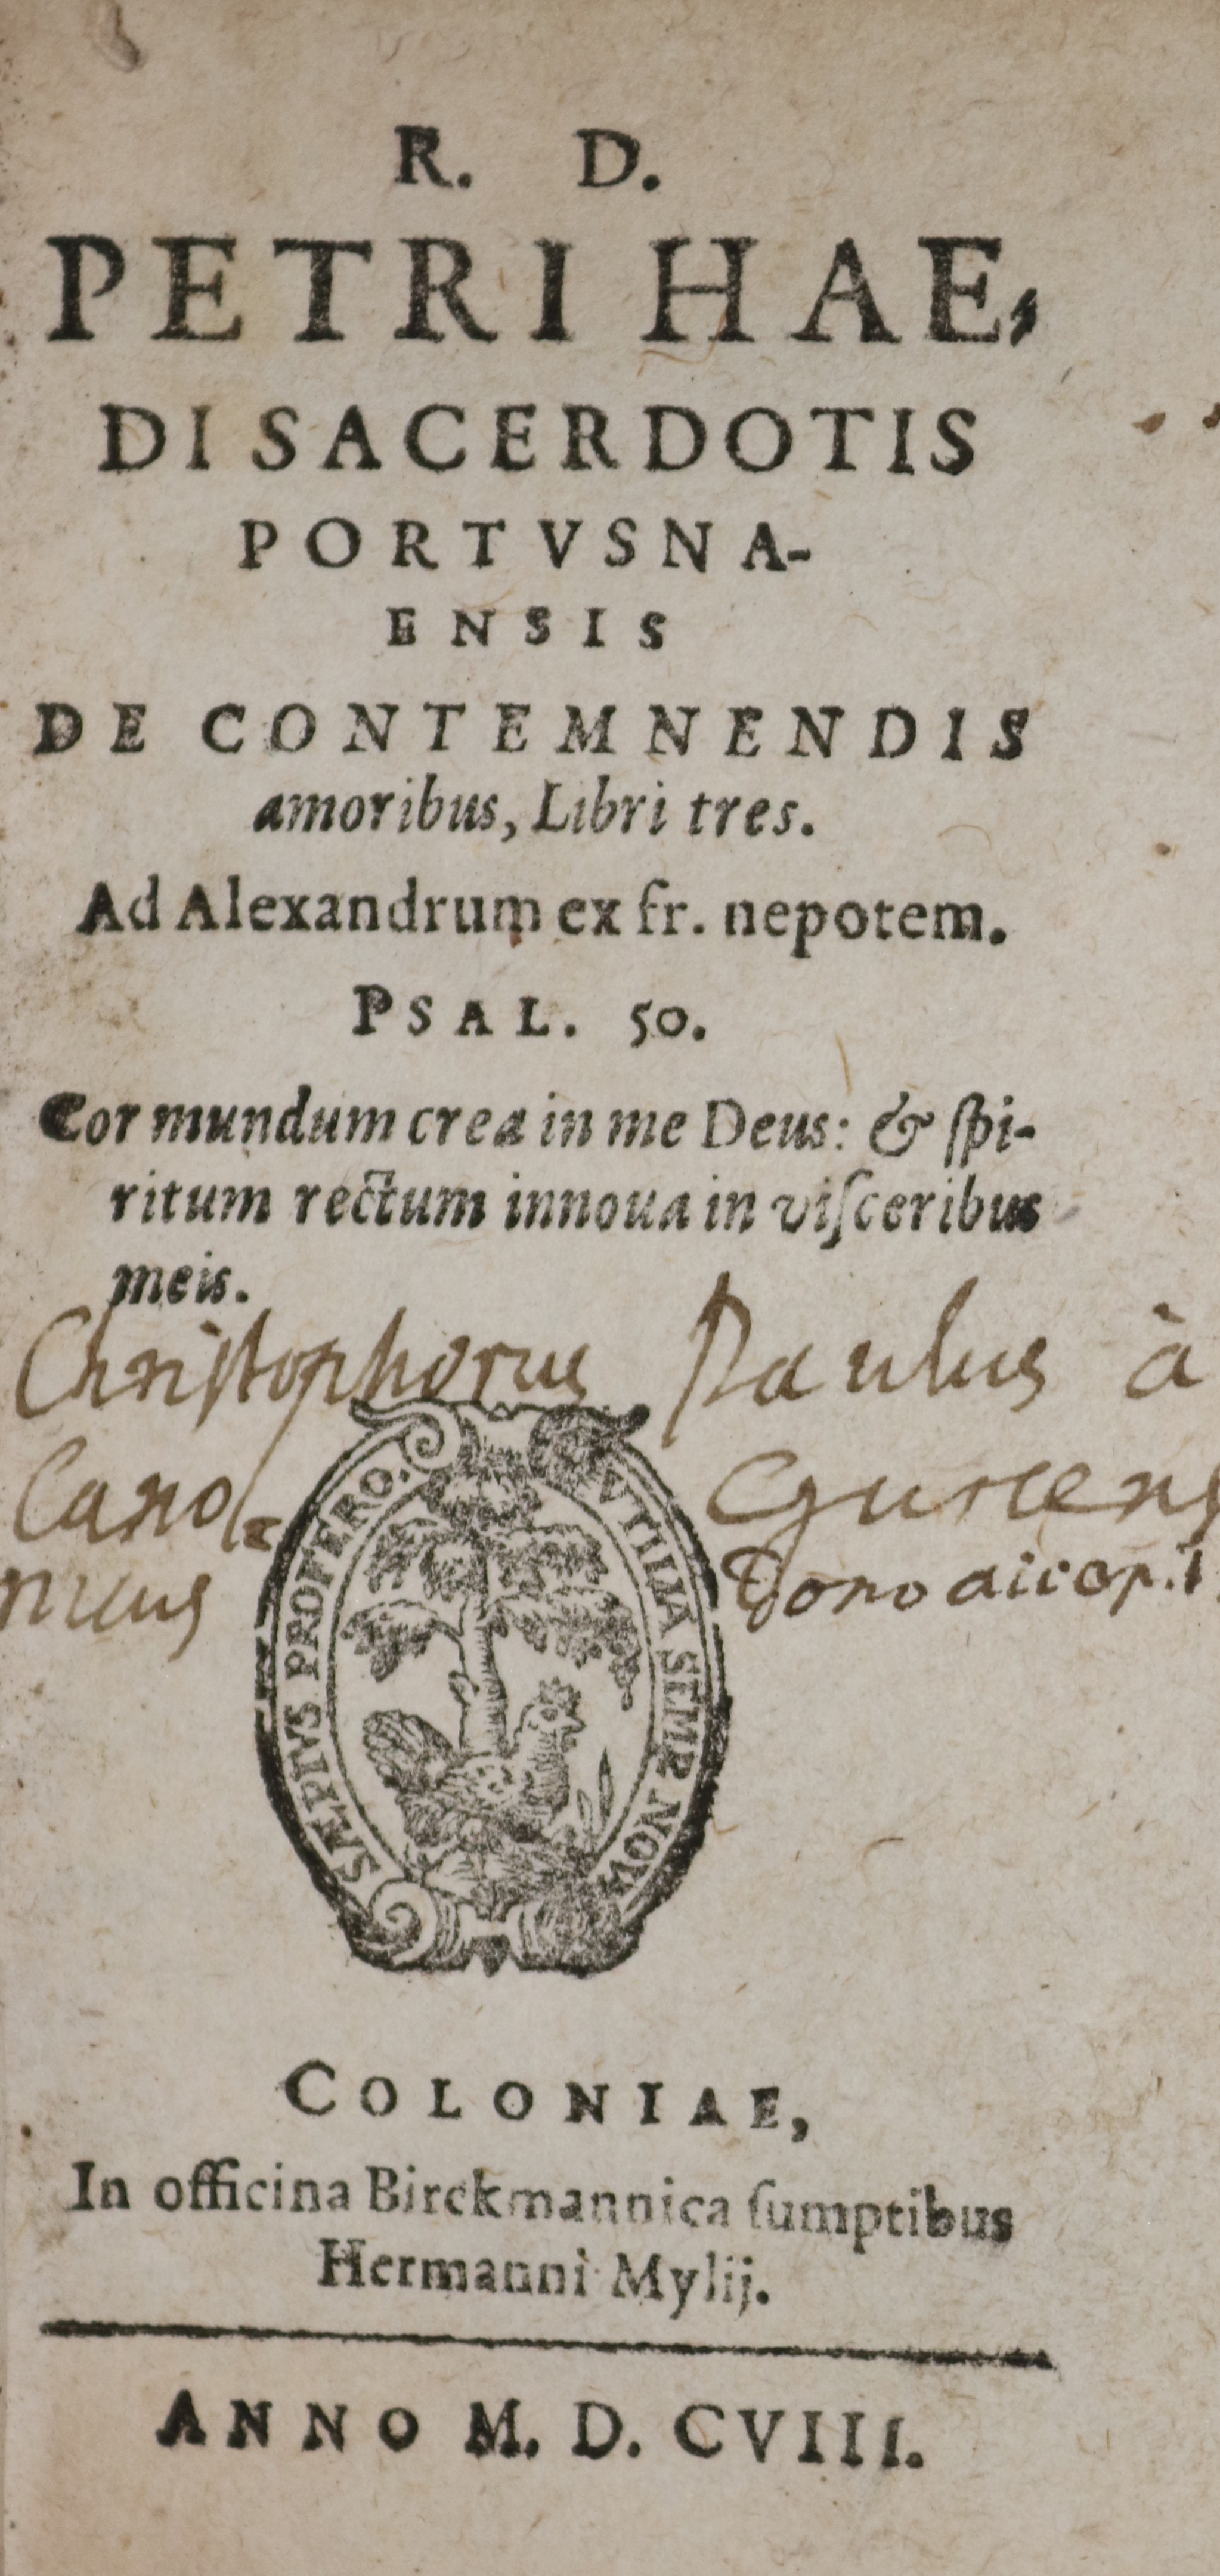 R. D.
PETRI HAE,
DI SACERDOTIS
PORTVSNA-
ENSIS
DE CONTEMNENDIS
amoribus, Libri tres.
Ad Alexandrum ex fr. nepotem.
PSAL. 50.
Cor mundum crea in me Deus: & ſpi-
ritum rectum innoua in viſceribus
meis.
Christophorus Paulus à
Cano=
nicus
Dono
SÆPIVS PROFERO.
VTILIA SEMP NOVA
COLONIAE,
In officina Birckmannica ſumptibus
Hermanni Mylij.
ANNO M. D. CVIII.